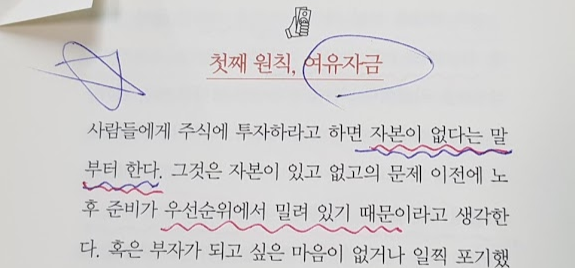 첫째 원칙, 여유자금
사람들에게 주식에 투자하라고 하면 자본이 없다는 말
부터 한다. 그것은 자본이 있고 없고의 문제 이전에 노
후 준비가 우선순위에서 밀려 있기 때문이라고 생각한
다. 혹은 부자가 되고 싶은 마음이 없거나 일찍 포기했